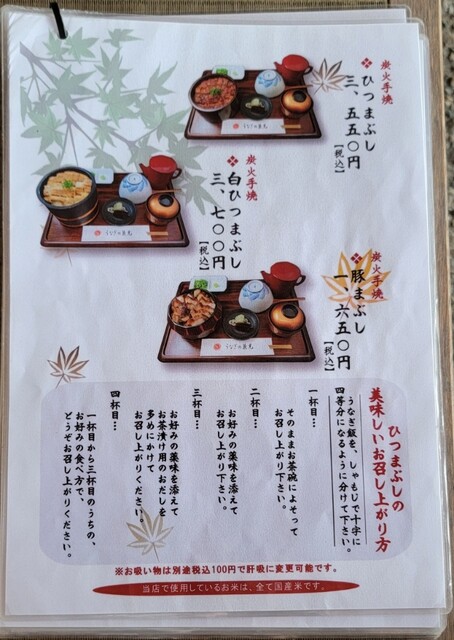 炭火手焼
❖ひつまぶし
三、五五〇円
【税込】
炭火手焼
❖白ひつまぶし
三、七〇〇円
【税込】
炭火手焼
❖豚まぶし
一、六五〇円
【税込】
ひつまぶしの
美味しいお召し上がり方
うなぎ飯を、しゃもじで十字に
四等分になるように分けて下さい。
一杯目…
そのままお茶碗によそって
お召し上がり下さい。
二杯目…
お好みの薬味を添えて
お召し上がり下さい。
三杯目…
お好みの薬味を添えて
お茶漬け用のおだしを
多めにかけて
お召し上がりください。
四杯目…
一杯目から三杯目のうちの、
お好みの食べ方で、
どうぞお召し上がりください。
※お吸い物は別途税込100円で肝吸に変更可能です。
当店で使用しているお米は、全て国産米です。